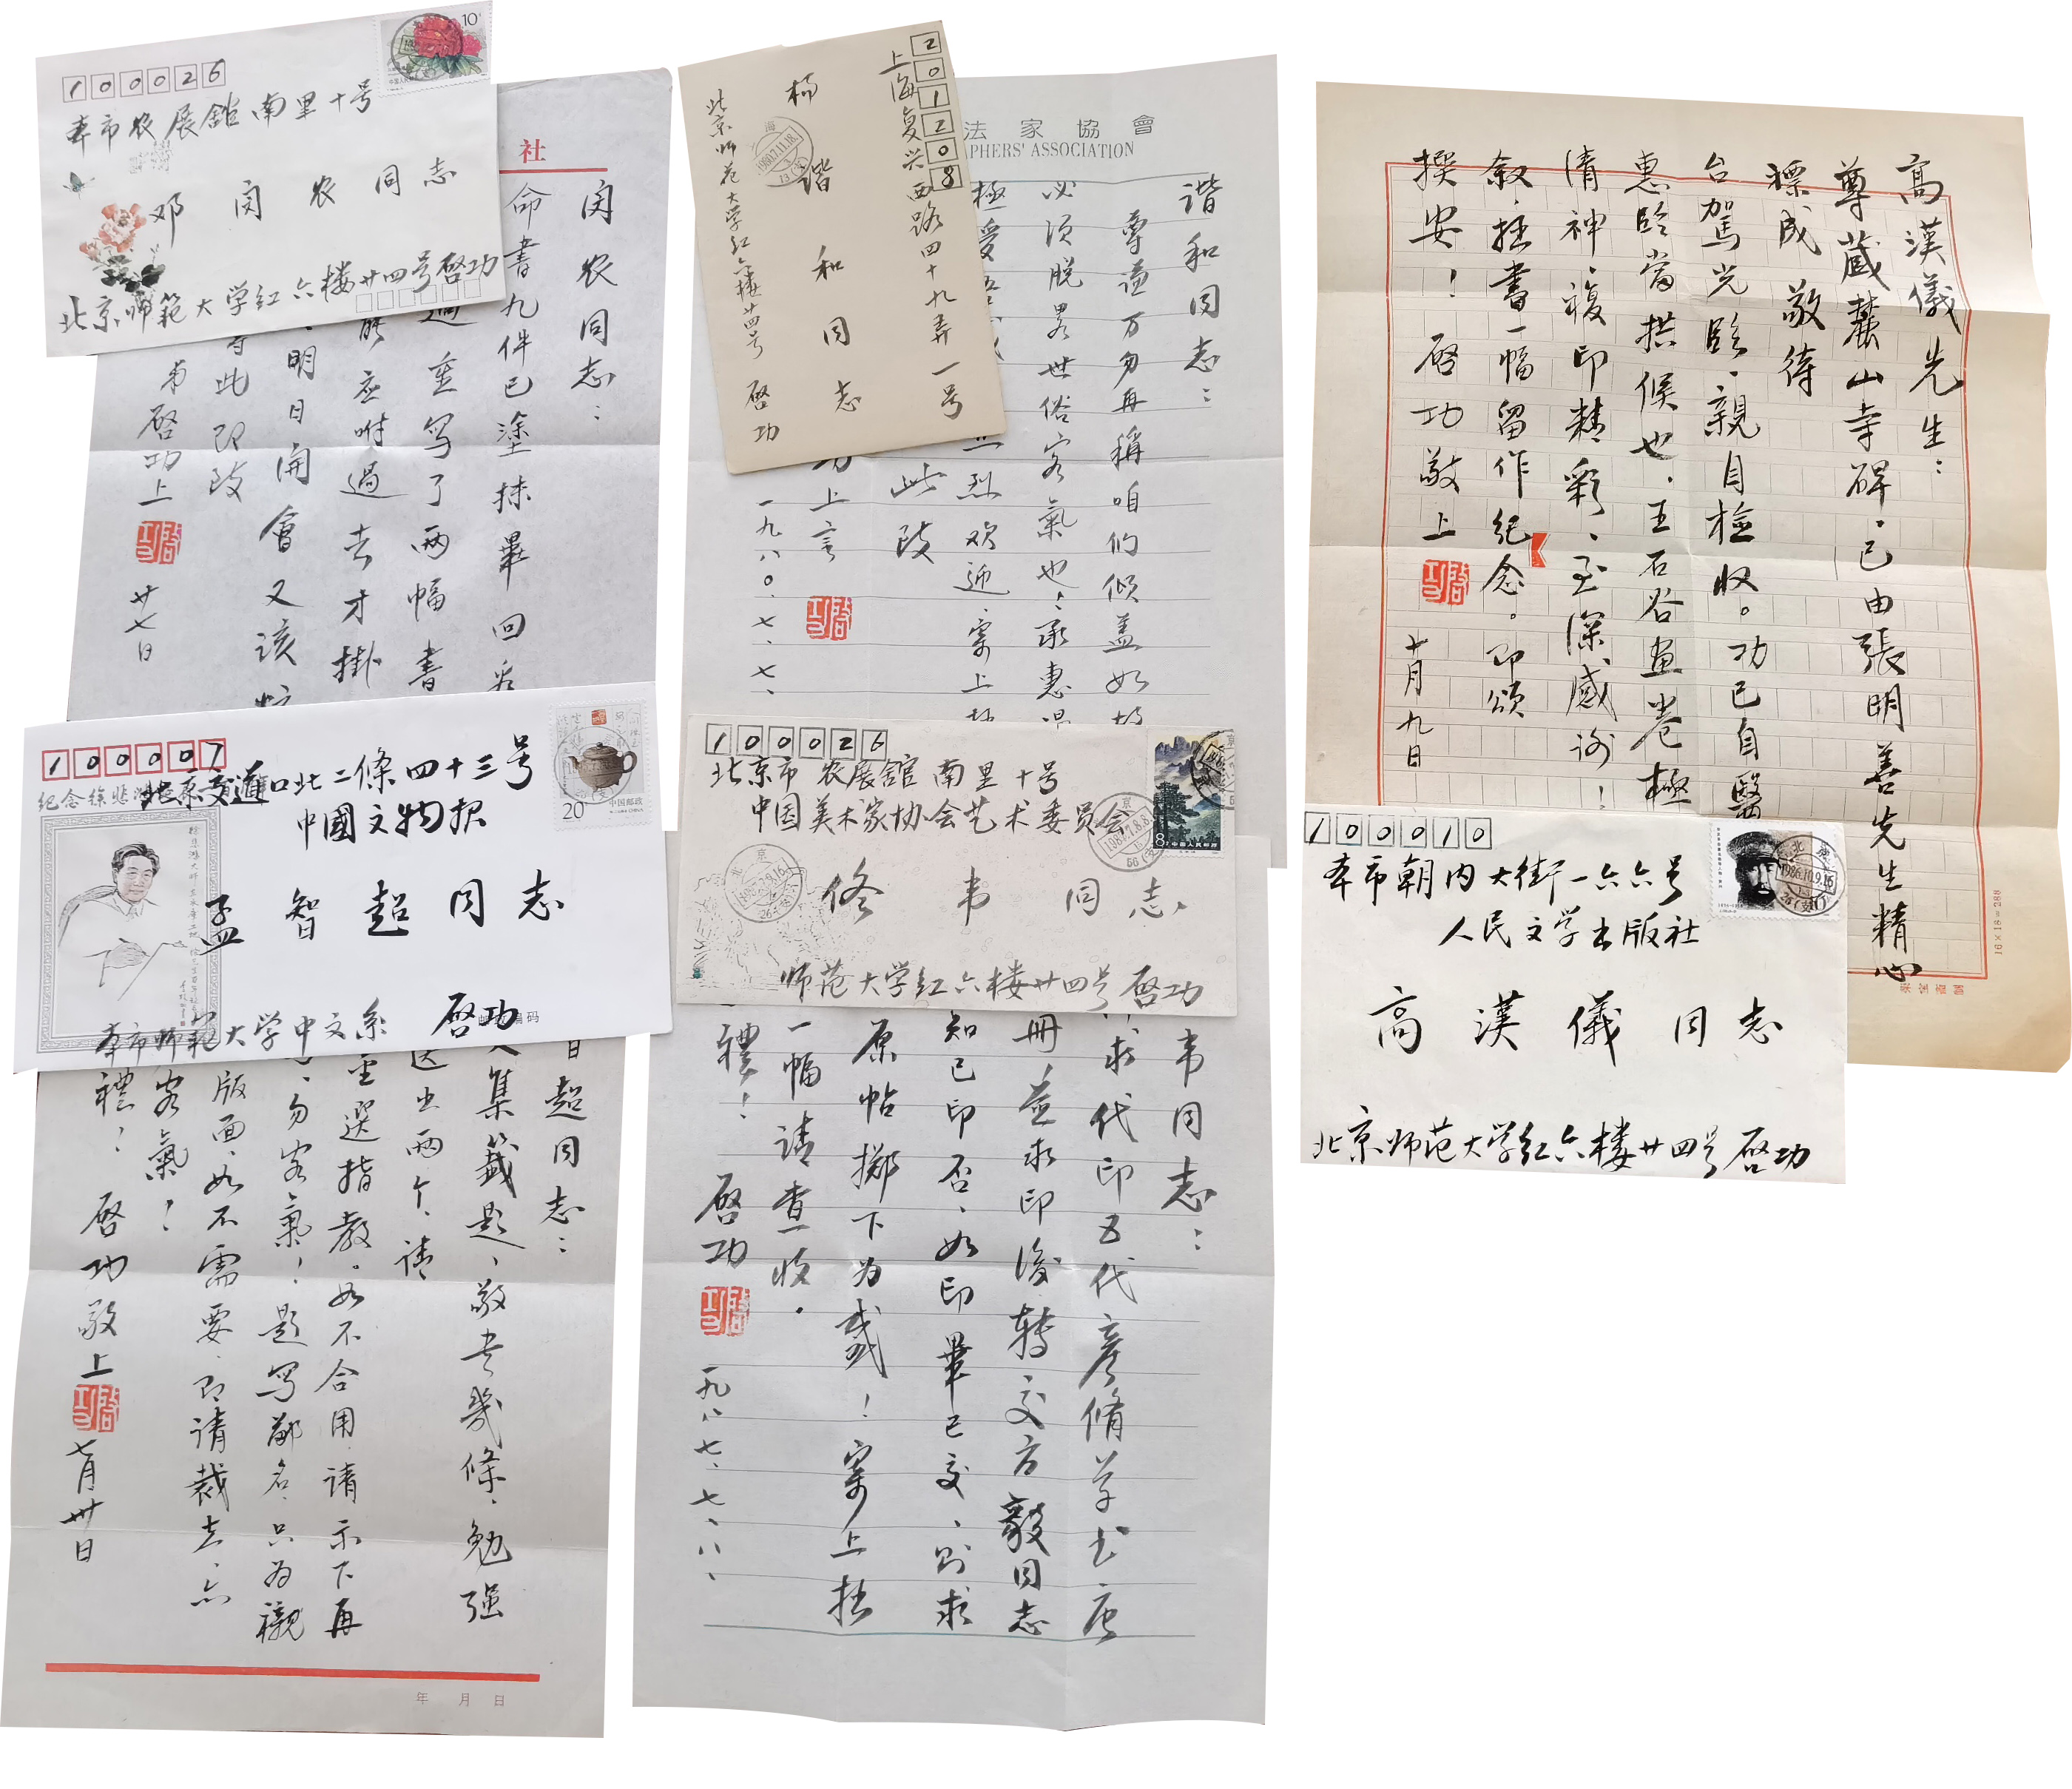 100026
本市农展館南里十号
邓闵农同志
北京师範大学红六楼廿四号启功
社
闵农同志：
命書九件已塗抹畢回
重写了两幅書
应咐過去才掛
明日開會又该
此即致
弟启功上
廿七日
201208
上海复兴西路四十九弄一号
杨谐和同志
北京师范大学红六楼廿四号 启功
法家協會
PHERS' ASSOCIATION
谐和同志：
尊谦万勿再稱咱们倾盖如
必须脱畧世俗客氣也！承惠
極受
烈欢迎、寄上
此致
功上言
一九八〇、七、七、
高漢儀先生：
尊藏麓山寺碑，已由張明善先生精心
裱成敬待
台駕光臨，親自檢收。功已自醫
惠臨當拱候也，王石谷画卷極
清神，複印精彩，至深感谢！
敘，拙書一幅留作纪念。即頌
撰安！ 启功敬上
十月九日
16×18=288
100007
纪念徐悲
北京交道口北二條四十三号
中國文物报
孟智超同志
本市师範大学中文系 启功
编码
20
中国邮政
超同志：
集籤题、敬书幾條、勉强
送上两个、请
选指教。如不合用、请示下再
勿客氣！题写鄙名、只为襯
版面、如不需要、即请裁去、
客氣！
禮！ 启功敬上
七月卅日
年 月 日
100026
北京市农展館南里十号
中国美术家协会艺术委员会
佟韦同志
师范大学红六楼廿四号启功
8分
中国人民邮政
韦同志：
求代印五代彦脩草书唐
冊並求印後、转交方毅同志
知已印否、如印畢已交、则求
原帖掷下为感！寄上拙
一幅请查收。
禮！ 启功
一九八七、七、八、
100010
本市朝内大街一六六号
人民文学出版社
高漢儀同志
北京师范大学红六楼廿四号启功
北京
1986.10.9.16